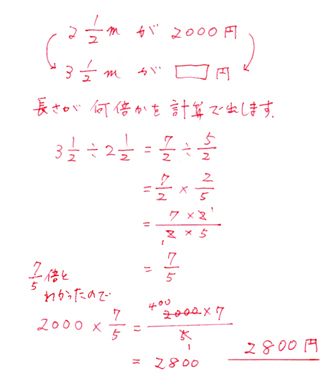 2 1/2 m が 2000円
3 1/2 m が □ 円
長さが何倍かを計算で出します.
3 1/2 ÷ 2 1/2 = 7/2 ÷ 5/2
= 7/2 × 2/5
= 7 × 2 1 / 1 2 × 5
= 7/5
7/5 倍と
わかったので
2000 × 7/5 = 400 2000 × 7 / 5 1
= 2800
2800円